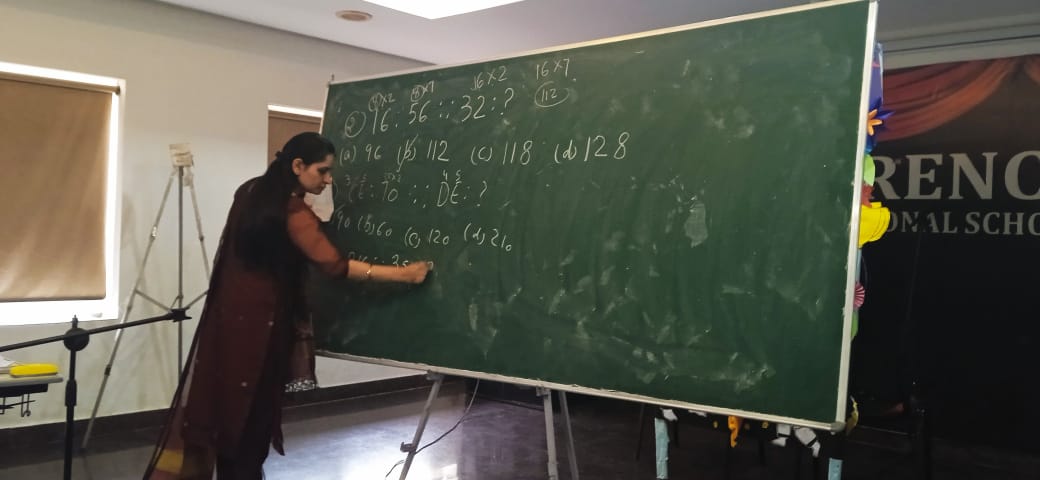 8×2 8×7 16×2 16×7
② 16 : 56 :: 32 : ? 112
(a) 96 (b) 112 (c) 118 (d) 128
CE : 70 :: DE : ?
90 (b) 60 (c) 120 (d) 210
:: 35
RENC
ONAL SCHO